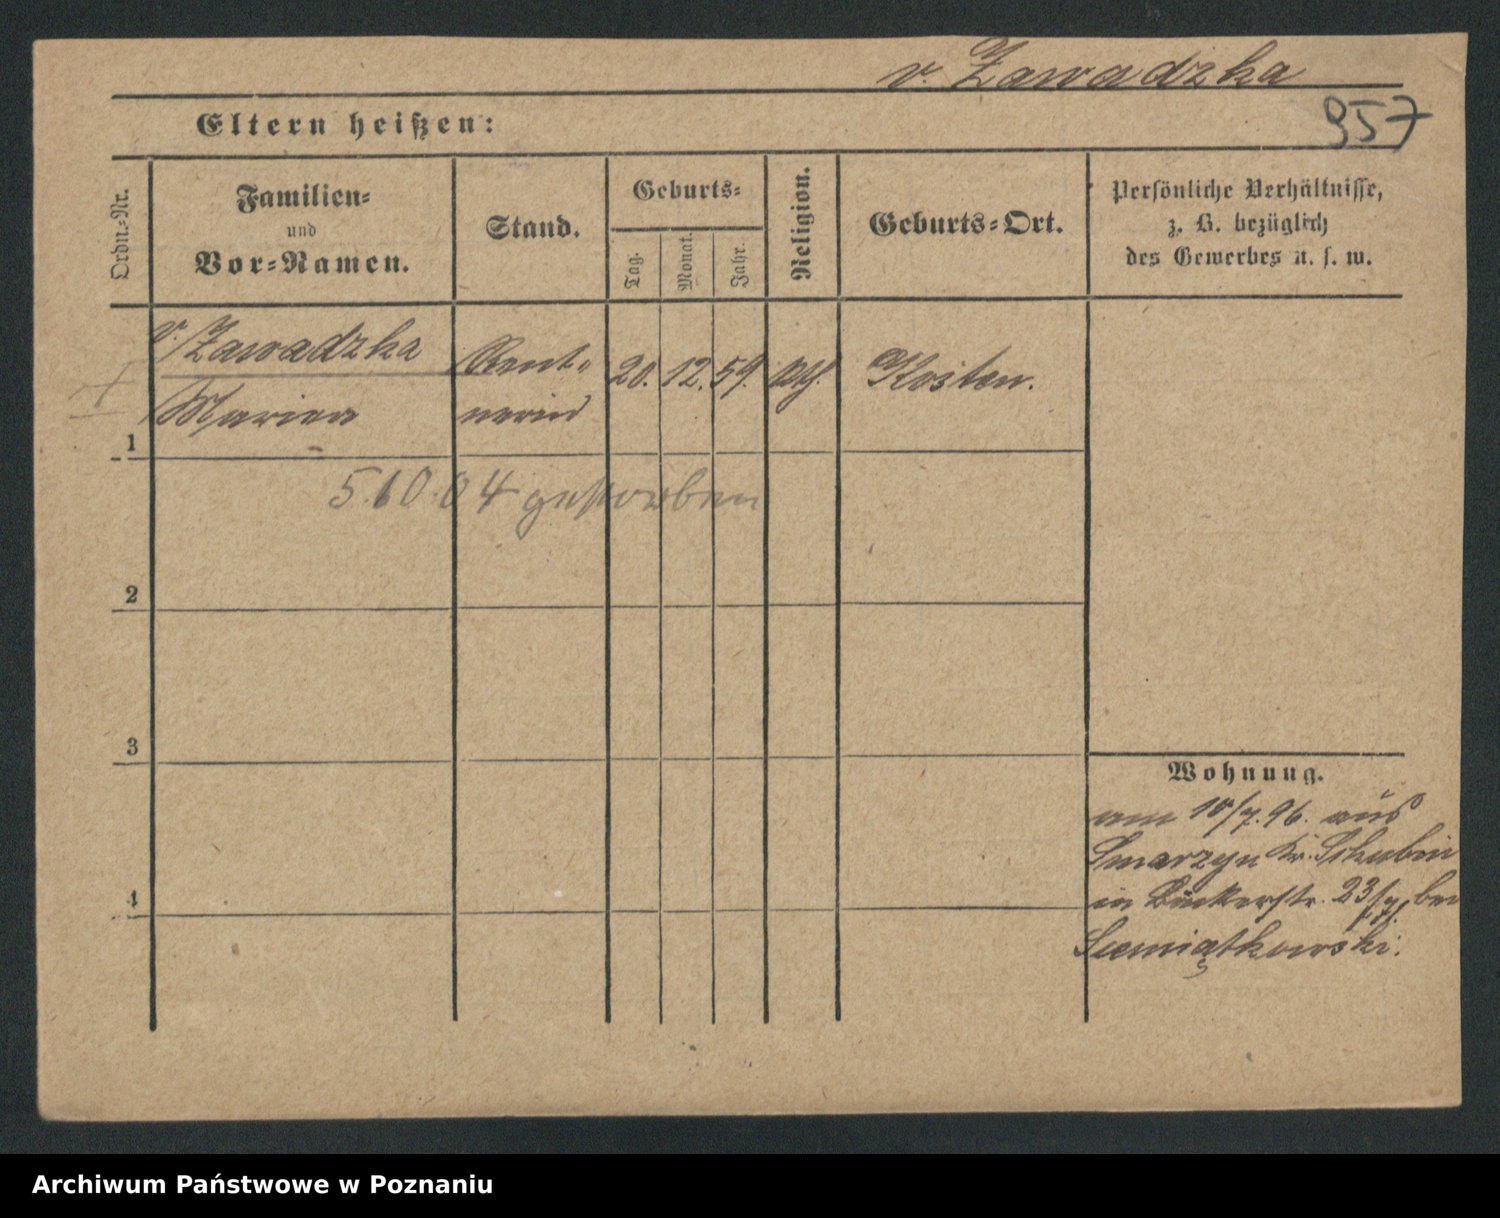 v. Zawadzka
957
Eltern heißen:
Ordn.-Nr.
Familien-
und
Vor-Namen.
Stand.
Geburts-
Tag.
Monat.
Jahr.
Religion.
Geburts-Ort.
Persönliche Verhältnisse,
z. B. bezüglich
des Gewerbes u. s. w.
1
v. Zawadzka
Marien
Rent-
nerin
20. 12. 59.
kth.
Kosten.
5.10.04 gestorben
2
3
4
Wohnung.
am 10/7. 96. aus
Smarzyn Kr. Schubin
in Bäckerstr. 23/ bei
Siemiątkowski.
Archiwum Państwowe w Poznaniu